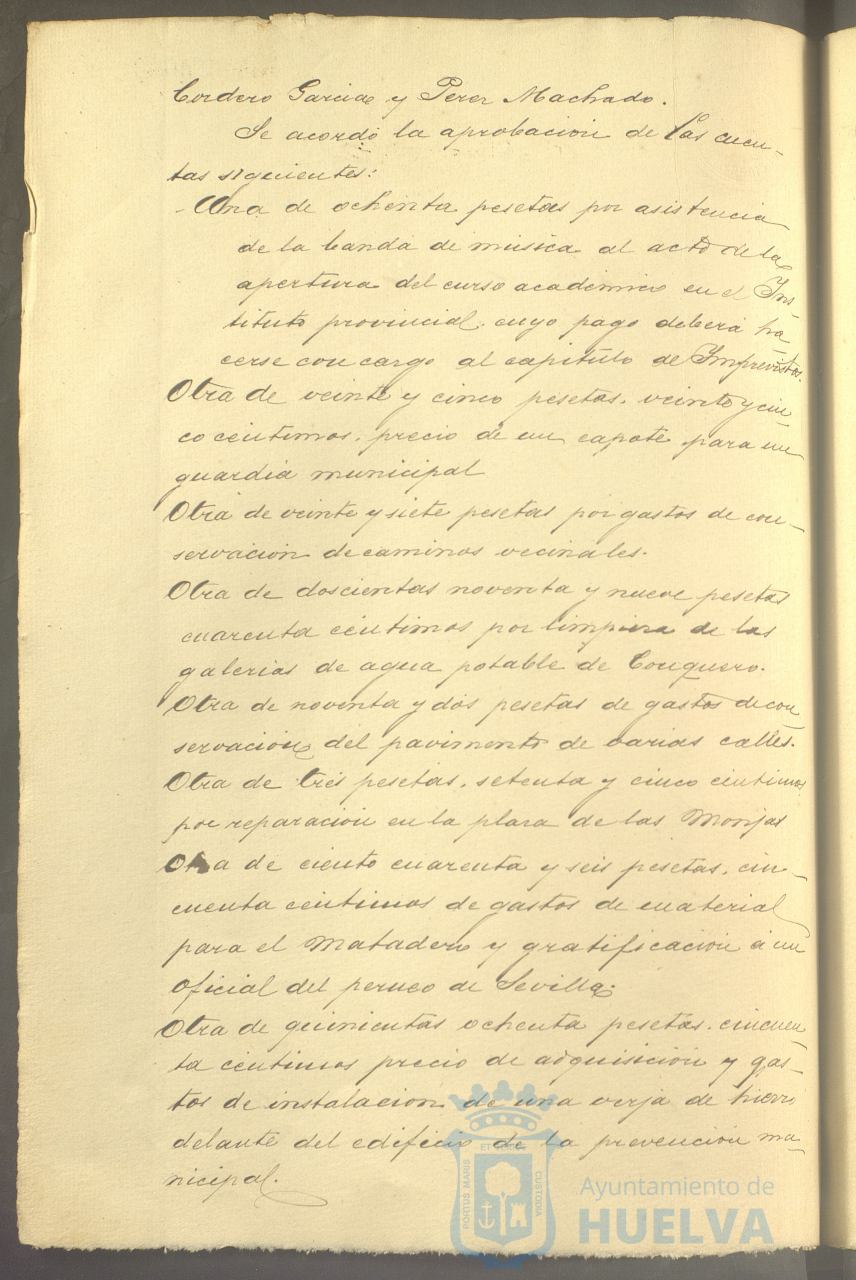 Cordero Garcia y Perez Machado.
Se acordó la aprobacion de las cuen-
tas siguientes:
- Una de ochenta pesetas por asistencia
de la banda de música al acto de la
apertura del curso academico en el Ins-
tituto provincial, cuyo pago deberá ha-
cerse con cargo al capitulo de Imprevistos.
Otra de veinte y cinco pesetas, veinte y cin-
co centimos, precio de un capote para un
guardia municipal
Otra de veinte y siete pesetas por gastos de con-
servacion de caminos vecinales.
Otra de doscientas noventa y nueve pesetas
cuarenta centimos por limpieza de las
galerias de agua potable de Conquero.
Otra de noventa y dos pesetas de gastos de con-
servacion del pavimento de varias calles.
Otra de tres pesetas, setenta y cinco centimos
por reparacion en la plaza de las Monjas
Otra de ciento cuarenta y seis pesetas, cin-
cuenta centimos de gastos de material
para el Matadero y gratificacion á un
oficial del de Sevilla.
Otra de quinientas ochenta pesetas, cincuen-
ta centimos precio de adquisicion y gas-
tos de instalacion de una verja de hierro
delante del edificio de la prevencion mu-
nicipal.
PORTUS MARIS ET TERRE CUSTODIA
Ayuntamiento de
HUELVA